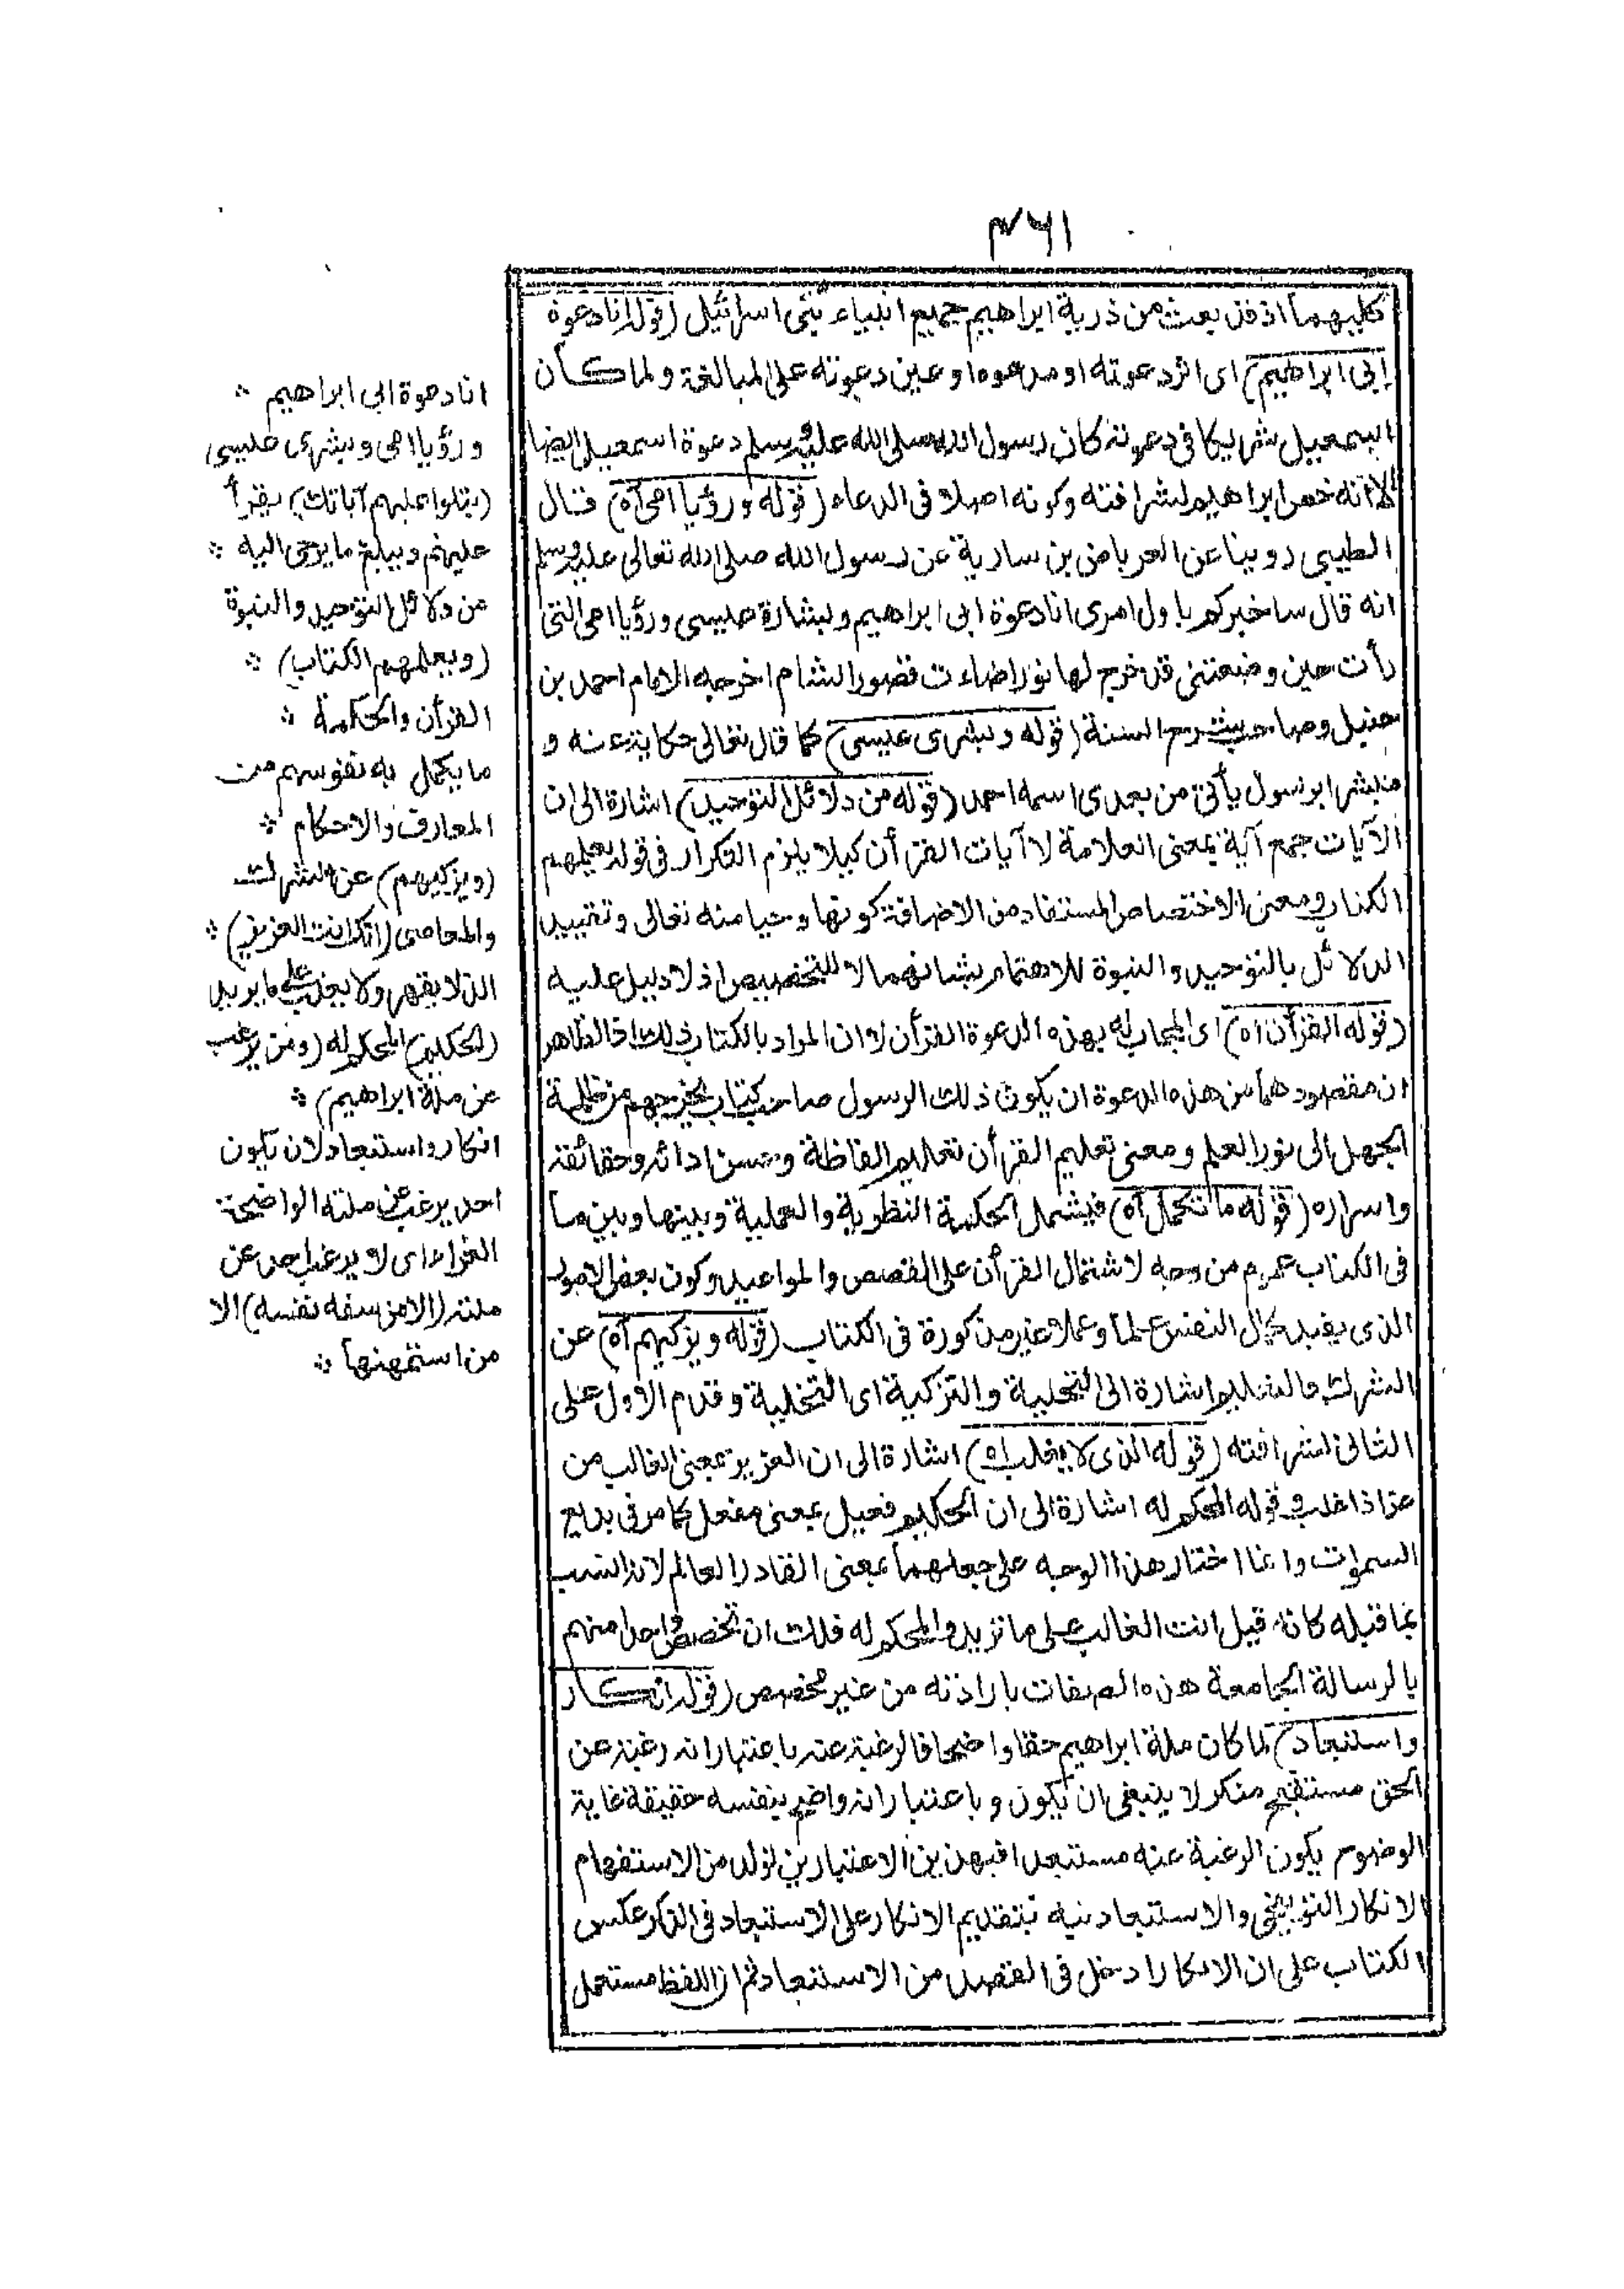 ٤٦١
كليهما اذ قد بعث من ذرية ابراهيم جميع انبياء بنى اسرائيل (قوله انا دعوة
ابى ابراهيم) اى اثر دعوته او مدعوه او عين دعوته على المبالغة ولما كان
اسمعيل شريكا فى دعوته كان رسول الله صلى الله عليه وسلم دعوة اسمعيل ايضا
الا انه خص ابراهيم لشرافته وكونه اصلا فى الدعاء (قوله ورؤيا امى اه) قال
الطيبى روينا عن العرباض بن سارية عن رسول الله صلى الله تعالى عليه وسلم
انه قال ساخبركم باول امرى انا دعوة ابى ابراهيم وبشارة عيسى ورؤيا امى التى
رأت حين وضعتنى قد خرج لها نور اضاءت قصور الشام اخرجه الامام احمد بن
حنبل وصاحب شرح السنة (قوله وبشرى عيسى) كما قال تعالى حكاية عنه و
مبشرا برسول يأتى من بعدى اسمه احمد (قوله من دلائل التوحيد) اشارة الى ان
الآيات جمع آية بمعنى العلامة لا آيات القرأن كيلا يلزم التكرار فى قوله يعلمهم
الكتاب ومعنى الاختصاص المستفاد من الاضافة كونها وحيا منه تعالى وتقييد
الدلائل بالتوحيد والنبوة للاهتمام بشانهما لا للتخصيص اذ لا دليل عليه
(قوله القرأن اه) اى المجاب له بهذه الدعوة القرأن لا ان المراد بالكتاب ذلك اذ الظاهر
ان مقصودهما من هذه الدعوة ان يكون ذلك الرسول صاحب كتاب يخرجهم من ظلمة
الجهل الى نور العلم ومعنى تعليم القرأن تعليم الفاظه وحسن ادائه وحقائقه
واسراره (قوله ما تكمل اه) فيشمل الحكمة النظرية والعملية وبينها وبين ما
فى الكتاب عموم من وجه لاشتمال القرأن على القصص والمواعيد وكون بعض الامور
الذى يفيد كمال النفس علما وعملا غير مذكورة فى الكتاب (قوله ويزكيهم اه) عن
الشرك فالتعليم اشارة الى التحلية والتزكية اى التخلية وقدم الاول على
الثانى لشرافته (قوله الذى لا يغلب اه) اشارة الى ان العزيز بمعنى الغالب من
عز اذا غلب وقوله المحكم له اشارة الى ان الحكيم فعيل بمعنى مفعل كما مر فى بديع
السموات وانما اختار هذا الوجه على جعلهما بمعنى القادر العالم لانه انسب
بما قبله كانه قيل انت الغالب على ما تريد والمحكم له فلك ان تخصص واحدا منهم
بالرسالة الجامعة هذه الصفات بارادته من غير مخصص (قوله انكار
واستبعاد) لما كان ملة ابراهيم حقا واضحا فالرغبة عنه باعتبار انه رغبة عن
الحق مستقبح منكر لا ينبغى ان يكون وباعتبار انه واضح بنفسه حقيقة غاية
الوضوح يكون الرغبة عنه مستبعدا فبهذين الاعتبارين تولد من الاستفهام
الانكار التوبيخى والاستبعاد نبه بتقديم الانكار على الاستبعاد فى الذكر عكس
الكتاب على ان الانكار ادخل فى القصد من الاستبعاد ثم ان اللفظ مستعمل
انا دعوة ابى ابراهيم
ورؤيا امى وبشرى عيسى
(يتلوا عليهم آياتك) يقرأ
عليهم ويبلغ ما يوحى اليه
من دلائل التوحيد والنبوة
(ويعلمهم الكتاب)
القرأن والحكمة
ما يكمل به نفوسهم من
المعارف والاحكام
(ويزكيهم) عن الشرك
والمعاصى (انك انت العزيز)
الذى لا يقهر ولا يغلب على ما يريد
(الحكيم) المحكم له (ومن يرغب
عن ملة ابراهيم)
انكار واستبعاد لان يكون
احد يرغب عن ملته الواضحة
الغراء اى لا يرغب احد عن
ملته (الا من سفه نفسه) الا
من استمهنها